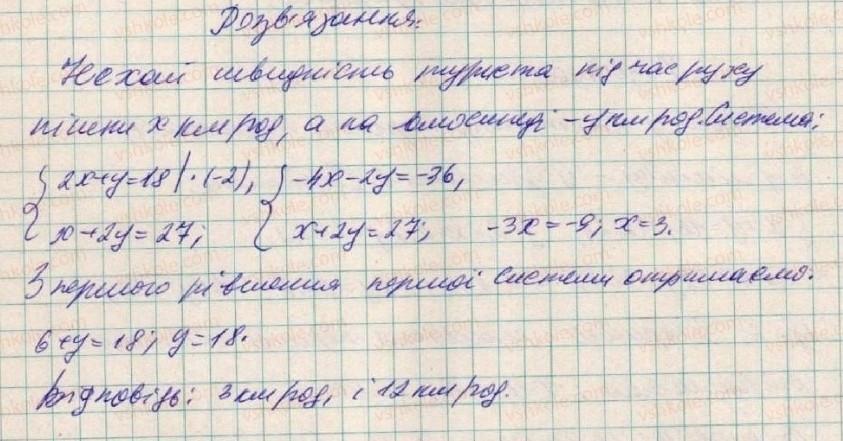 Розв'язання:
Нехай швидкість туриста під час руху
пішки x км/год, а на велосипеді – y км/год. Система:
{ 2x+y=18 | · (-2), { -4x-2y=-36,
x+2y=27; x+2y=27; -3x=-9; x=3.
З першого рівняння першої системи отримаємо:
6+y=18; y=18.
Відповідь: 3 км/год, і 12 км/год.